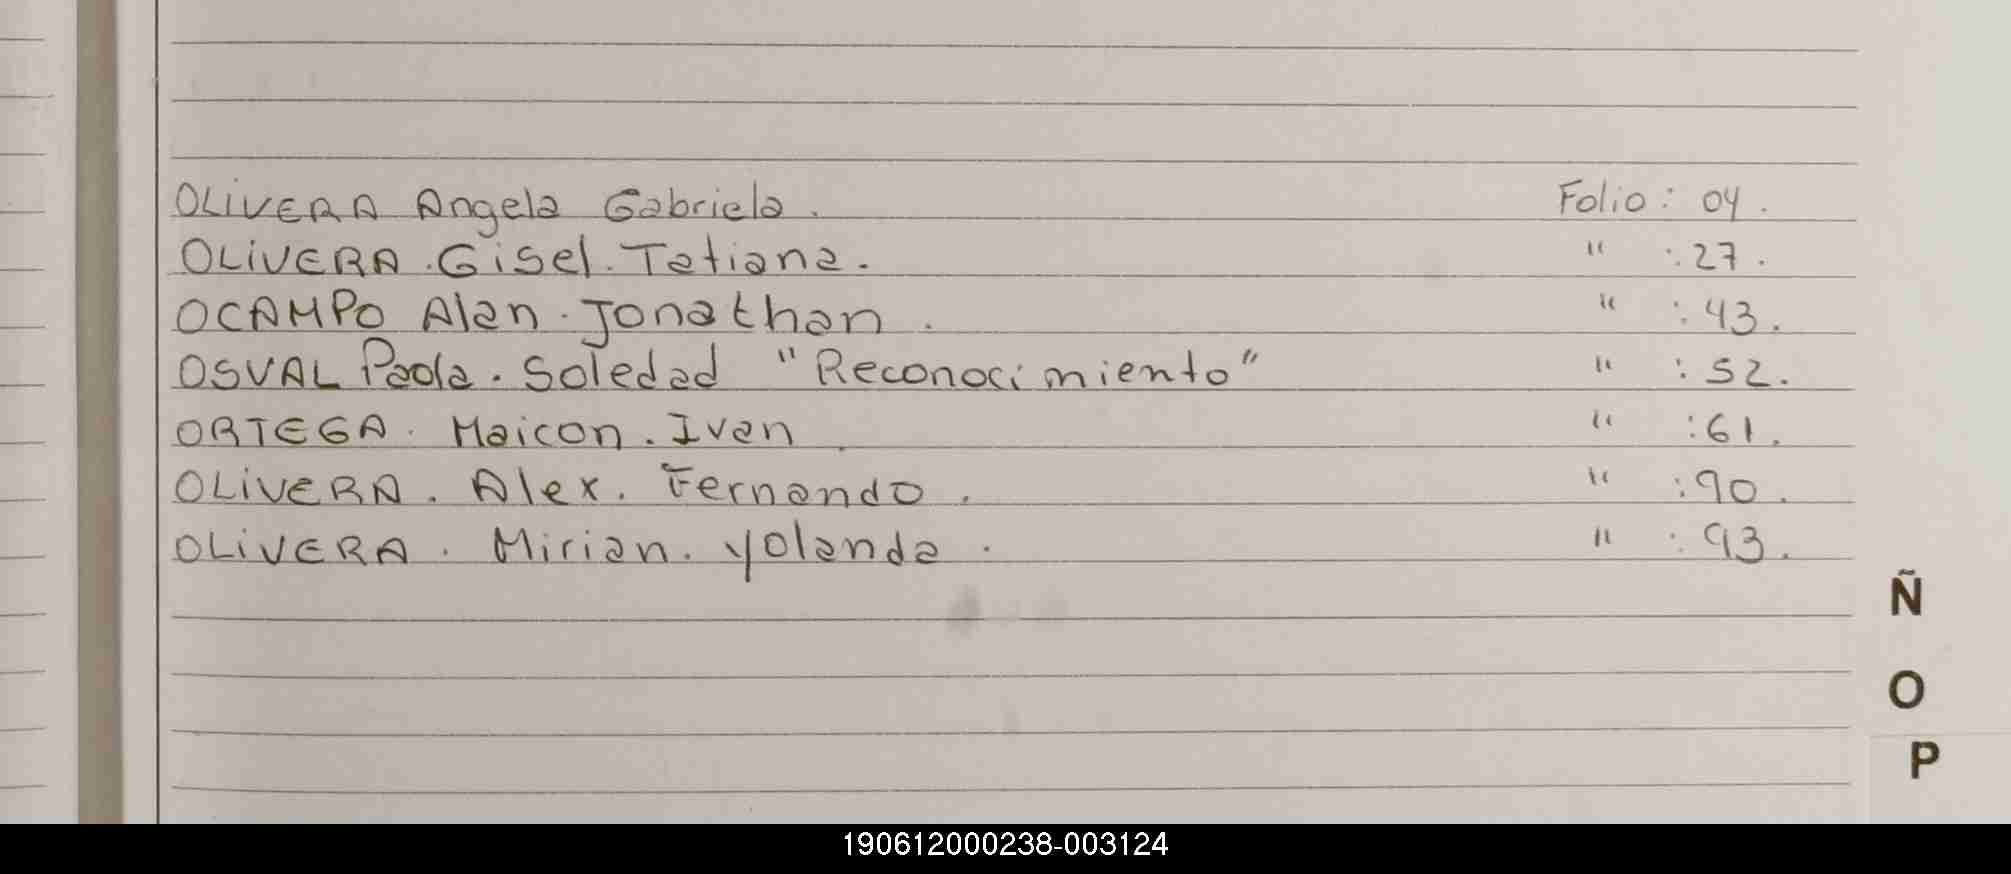 OLIVERA Angela Gabriela. Folio: 04.
OLIVERA. Gisel. Tatiana. " :27.
OCAMPO Alan. Jonathan. " :43.
OSVAL Paola. Soledad "Reconocimiento" " :52.
ORTEGA. Maicon. Ivan. " :61.
OLIVERA. Alex. Fernando. " :90.
OLIVERA. Mirian. Yolanda. " :93.
Ñ
O
P
190612000238-003124